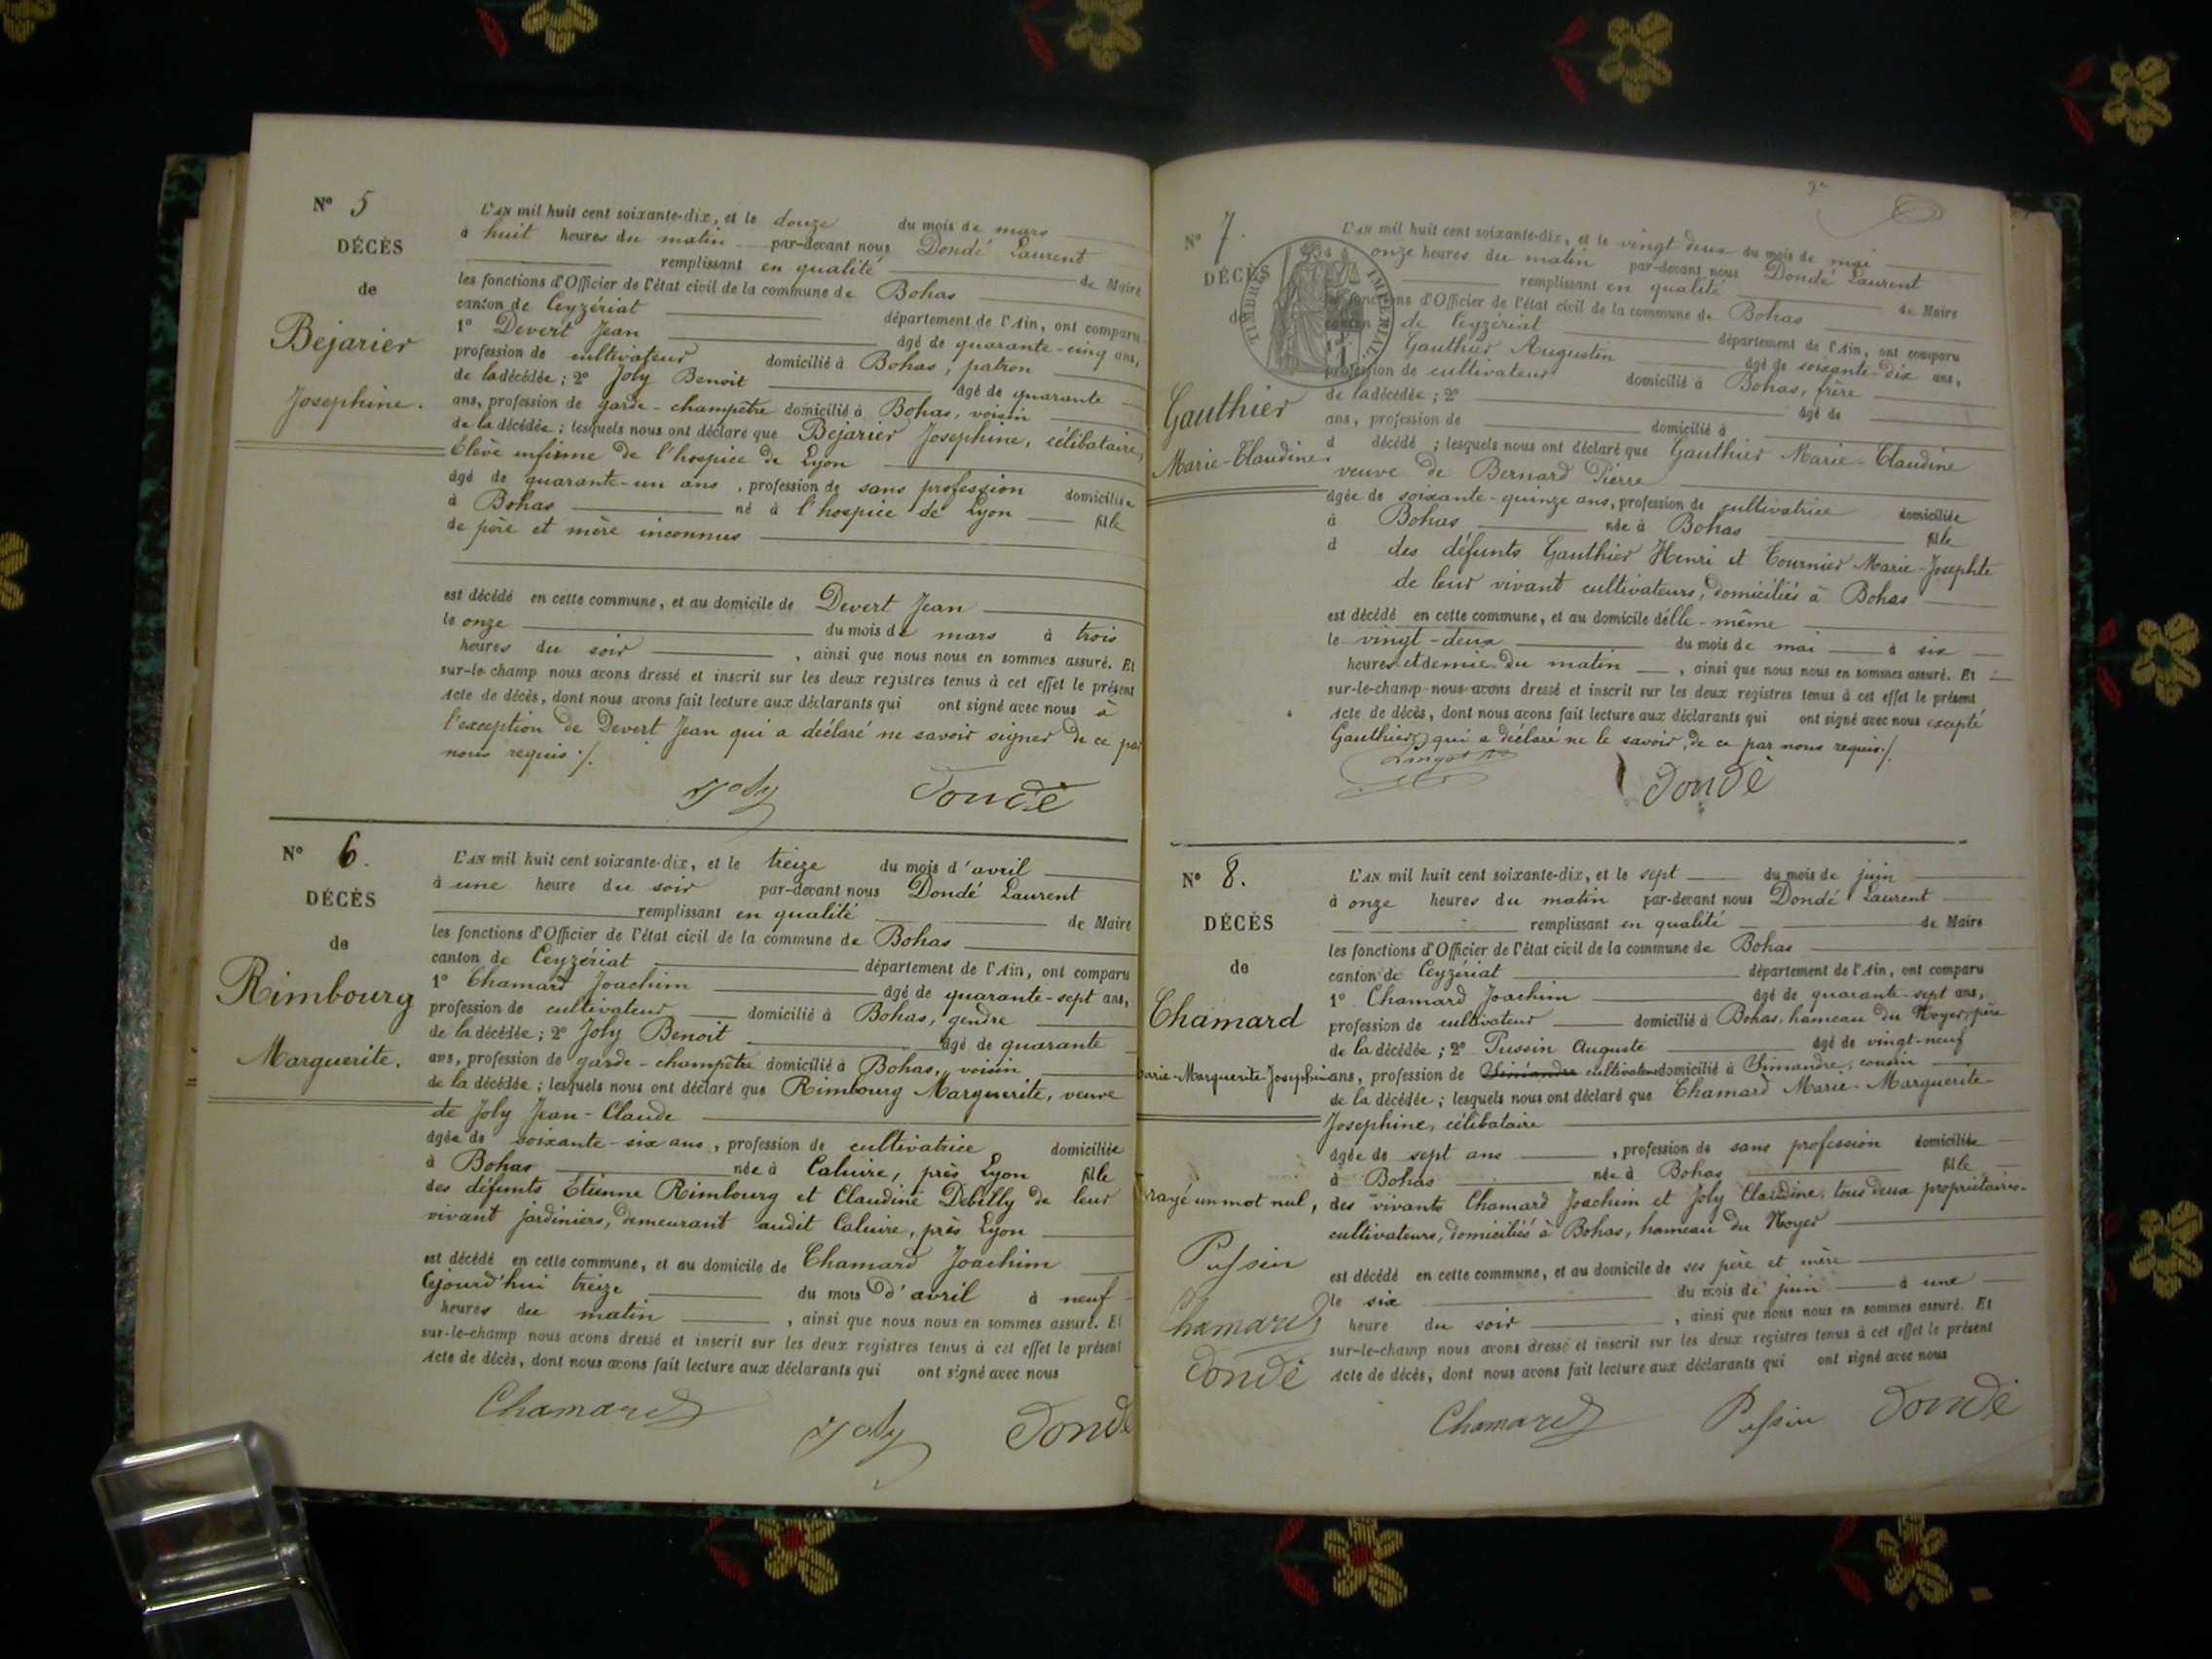 N° 5
DÉCÈS
de
Bejarier
Josephine.
L'AN mil huit cent soixante-dix, et le douze du mois de mars
à huit heures du matin par-devant nous Dondé Laurent
remplissant en qualité de Maire
les fonctions d'Officier de l'état civil de la commune de Bohas
canton de Ceyzériat département de l'Ain, ont comparu
1° Devert Jean âgé de quarante-cinq ans,
profession de cultivateur domicilié à Bohas, patron
de la décédée ; 2° Joly Benoit âgé de quarante
ans, profession de garde-champêtre domicilié à Bohas, voisin
de la décédée ; lesquels nous ont déclaré que Bejarier Josephine, célibataire,
Élève infirme de l'hospice de Lyon
âgé de quarante-un ans, profession de sans profession domiciliée
à Bohas né à l'hospice de Lyon fille
de père et mère inconnus
est décédé en cette commune, et au domicile de Devert Jean
le onze du mois de mars à trois
heures du soir, ainsi que nous nous en sommes assuré. Et
sur-le-champ nous avons dressé et inscrit sur les deux registres tenus à cet effet le présent
Acte de décès, dont nous avons fait lecture aux déclarants qui ont signé avec nous à
l'exception de Devert Jean qui a déclaré ne savoir signer de ce par
nous requis ./.
Joly Dondé
N° 6.
DÉCÈS
de
Rimbourg
Marguerite.
L'AN mil huit cent soixante-dix, et le treize du mois d'avril
à une heure du soir par-devant nous Dondé Laurent
remplissant en qualité de Maire
les fonctions d'Officier de l'état civil de la commune de Bohas
canton de Ceyzériat département de l'Ain, ont comparu
1° Chamard Joachim âgé de quarante-sept ans,
profession de cultivateur domicilié à Bohas, gendre
de la décédée ; 2° Joly Benoit âgé de quarante
ans, profession de garde-champêtre domicilié à Bohas, voisin
de la décédée ; lesquels nous ont déclaré que Rimbourg Marguerite, veuve
de Joly Jean-Claude
âgée de soixante-six ans, profession de cultivatrice domiciliée
à Bohas née à Caluire, près Lyon fille
des défunts Etienne Rimbourg et Claudine Debilly de leur
vivant jardiniers, demeurant audit Caluire, près Lyon
est décédé en cette commune, et au domicile de Chamard Joachim
Cejourd'hui treize du mois d'avril à neuf
heures du matin, ainsi que nous nous en sommes assuré. Et
sur-le-champ nous avons dressé et inscrit sur les deux registres tenus à cet effet le présent
Acte de décès, dont nous avons fait lecture aux déclarants qui ont signé avec nous
Chamard Joly Dondé
N° 7.
DÉCÈS
de
TIMBRE IMPÉRIAL
Gauthier
Marie-Claudine.
L'AN mil huit cent soixante-dix, et le vingt deux du mois de mai
onze heures du matin par-devant nous Dondé Laurent
remplissant en qualité de Maire
les fonctions d'Officier de l'état civil de la commune de Bohas
canton de Ceyzériat département de l'Ain, ont comparu
1° Gauthier Augustin âgé de soixante-dix ans,
profession de cultivateur domicilié à Bohas, frère
de la décédée ; 2° âgé de
ans, profession de domicilié à
d décédé ; lesquels nous ont déclaré que Gauthier Marie-Claudine
veuve de Bernard Pierre
âgée de soixante-quinze ans, profession de cultivatrice domiciliée
à Bohas née à Bohas fille
d des défunts Gauthier Henri et Tournier Marie-Josephte
de leur vivant cultivateurs, domiciliés à Bohas
est décédé en cette commune, et au domicile d'elle-même
le vingt-deux du mois de mai à six
heures et demie du matin, ainsi que nous nous en sommes assuré. Et
sur-le-champ nous avons dressé et inscrit sur les deux registres tenus à cet effet le présent
Acte de décès, dont nous avons fait lecture aux déclarants qui ont signé avec nous excepté
Gauthier qui a déclaré ne le savoir, de ce par nous requis ./.
Dondé
N° 8.
DÉCÈS
de
Chamard
Marie-Marguerite-Josephine
L'AN mil huit cent soixante-dix, et le sept du mois de juin
à onze heures du matin par-devant nous Dondé Laurent
remplissant en qualité de Maire
les fonctions d'Officier de l'état civil de la commune de Bohas
canton de Ceyzériat département de l'Ain, ont comparu
1° Chamard Joachim âgé de quarante-sept ans,
profession de cultivateur domicilié à Bohas, hameau du Noyer, père
de la décédée ; 2° Pussin Auguste âgé de vingt-neuf
ans, profession de Simandre cultivateur domicilié à Simandre, cousin
de la décédée ; lesquels nous ont déclaré que Chamard Marie-Marguerite-
Josephine, célibataire
âgée de sept ans, profession de sans profession domiciliée
à Bohas née à Bohas fille
des vivants Chamard Joachim et Joly Claudine, tous deux propriétaires-
cultivateurs, domiciliés à Bohas, hameau du Noyer
est décédé en cette commune, et au domicile de ses père et mère
le six du mois de juin à une
heure du soir, ainsi que nous nous en sommes assuré. Et
sur-le-champ nous avons dressé et inscrit sur les deux registres tenus à cet effet le présent
Acte de décès, dont nous avons fait lecture aux déclarants qui ont signé avec nous
Chamard Pussin Dondé
rayé un mot nul,
Pussin
Chamard
Dondé